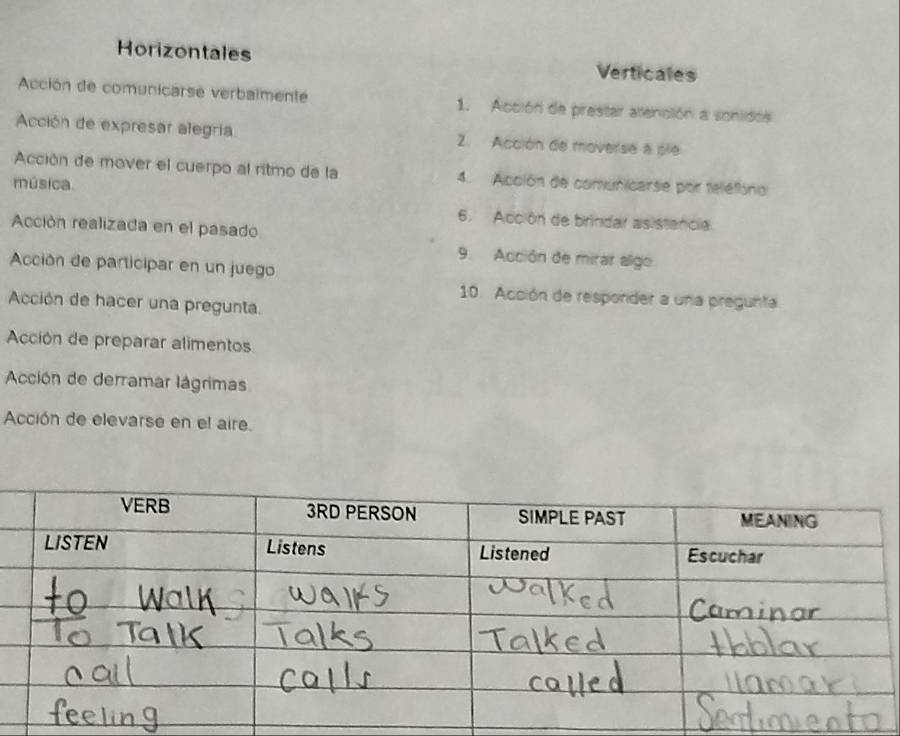 Horizontales
Acción de comunicarse verbalmente
Acción de expresar alegría
Acción de mover el cuerpo al ritmo de la
música
Acción realizada en el pasado.
Acción de participar en un juego
Acción de hacer una pregunta.
Acción de preparar alimentos
Acción de derramar lágrimas
Acción de elevarse en el aire.
Verticales
1. Acción de prestar atención a sonidos
2. Acción de moverse a pie
4. Acción de comunicarse por teléfono
6. Acción de brindar asistencia
9. Acción de mirar algo
10. Acción de responder a una pregunta
VERB 3RD PERSON SIMPLE PAST MEANING
LISTEN Listens Listened Escuchar
to Walk walks walked Caminar
To Talk Talks Talked Hablar
call calls called llamar
feeling Sentimiento